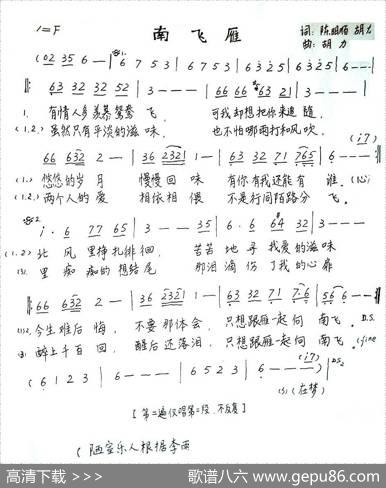 1=F
南飞雁
词: 陈 胡力
曲: 胡力
(02 35 6 — | 6 7 5 3 | 6 7 5 3 | 6 3 2 5 | 6 3 2 5 | 6 — — |
63 32 32 52 | 3 — — — | 66 66 63 21 | 3 — — — |
1. 有情人多羡慕鸳鸯飞, 可我却想把你来追随,
(1.2.) 虽然只有平淡的滋味, 也不怕哪雨打和风吹.
(17)
66 632 2 — | 36 2321 1 — | 63 32 71 765 | 6 — — — |
(1.) 悠悠的岁月 慢慢回味 有你有我还能有谁. (1.心)
(1.2.) 两个人的爱 相依相偎 不是行同陌路分飞.
i · 6 77 65 | 3 — — 35 | 6· 6 64 32 | 3 — — — |
(1.2) 北风里挣扎徘徊, 苦苦地寻我爱的滋味
(3). 里痴痴的想结尾 那泪滴伤了我的心扉
66 632 2 — | 36 2321 1 — | 63 32 71 76 | 56 6 — — |
(1)2. 今生难后悔, 不要那体会, 只想跟雁一起向南飞. D.S.
(3) 醉上千百回, 醒后还落泪, 只想跟雁一起向南飞. (fine
(6 1 2 3 | 6 — — — | 6 5 2 3 | 6 — — (17) | D.S2
(3) (在梦)
[第二遍仅唱第二段, 不反复]
(陋室乐人根据李雨
高清下载 >>>
歌谱八六 www.gepu86.com